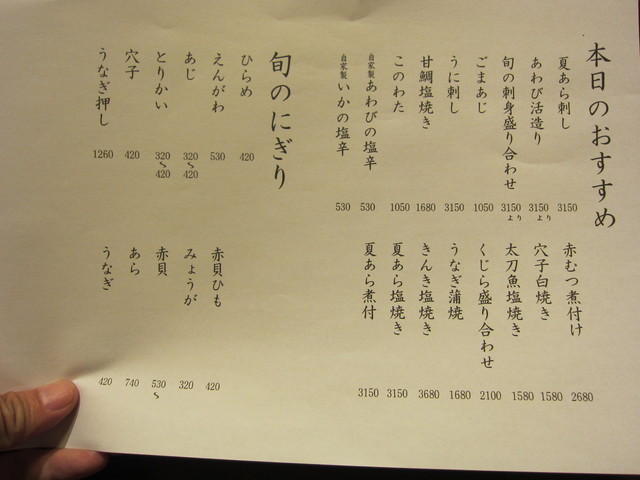 本日のおすすめ
夏あら刺し 3150
あわび活造り 3150より
旬の刺身盛り合わせ 3150より
ごまあじ 1050
うに刺し 3150
甘鯛塩焼き 1680
このわた 1050
自家製あわびの塩辛 530
自家製いかの塩辛 530
赤むつ煮付け 2680
穴子白焼き 1580
太刀魚塩焼き 1580
くじら盛り合わせ 2100
うなぎ蒲焼 1680
きんき塩焼き 3680
夏あら塩焼き 3150
夏あら煮付 3150
旬のにぎり
ひらめ 420
えんがわ 530
あじ 320〜420
とりかい 320〜420
穴子 420
うなぎ押し 1260
赤貝ひも 420
みょうが 320
赤貝 530〜
あら 740
うなぎ 420